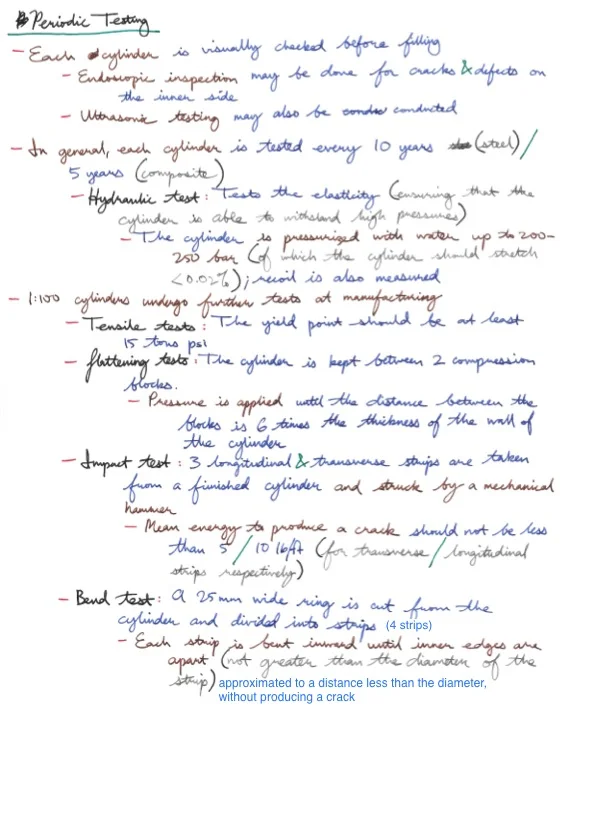 Periodic Testing
- Each cylinder is visually checked before filling
- Endoscopic inspection may be done for cracks & defects on
the inner side
- Ultrasonic testing may also be conducted
- In general, each cylinder is tested every 10 years (steel) /
5 years (composite)
- Hydraulic test: Tests the elasticity (ensuring that the
cylinder is able to withstand high pressures)
- The cylinder is pressurized with water up to 200-
250 bar (of which the cylinder should stretch
<0.02%); recoil is also measured
- 1:100 cylinders undergo further tests at manufacturing
- Tensile tests: The yield point should be at least
15 tons psi
- flattening tests: The cylinder is kept between 2 compression
blocks.
- Pressure is applied until the distance between the
blocks is 6 times the thickness of the wall of
the cylinder
- Impact test: 3 longitudinal & transverse strips are taken
from a finished cylinder and struck by a mechanical
hammer
- Mean energy to produce a crack should not be less
than 5 / 10 lb/ft (for transverse / longitudinal
strips respectively)
- Bend test: A 25 mm wide ring is cut from the
cylinder and divided into strips (4 strips)
- Each strip is bent inward until inner edges are
apart (not greater than the diameter of the
strip) approximated to a distance less than the diameter,
without producing a crack